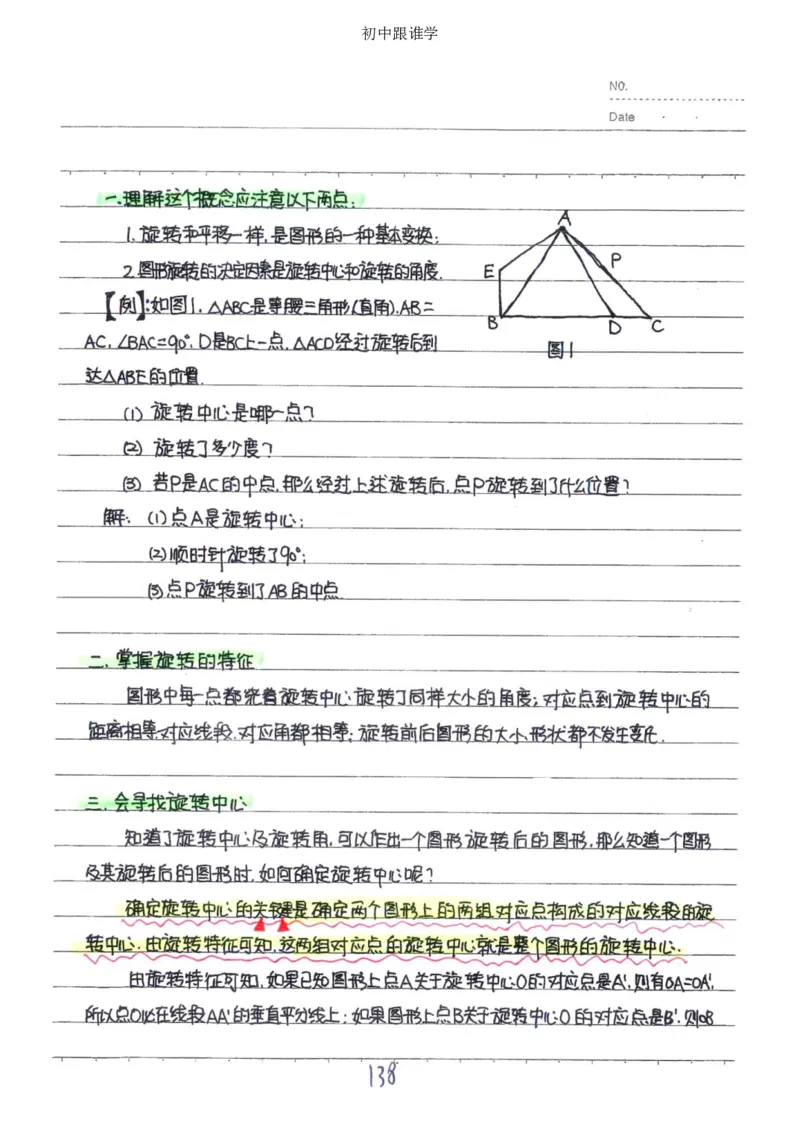 初中跟谁学
NO.
Date
一.理解这个概念应注意以下两点:
1.旋转和平移一样,是图形的一种基本变换;
2.图形旋转的决定因素是旋转中心和旋转的角度.
【例】:如图1,△ABC是等腰三角形(直角),AB=
AC,∠BAC=90°,D是BC上一点,△ACD经过旋转后到
达△ABE的位置.
A
E
P
B
D
C
图1
(1) 旋转中心是哪一点?
(2) 旋转了多少度?
(3) 若P是AC的中点,那么经过上述旋转后,点P旋转到了什么位置?
解: (1)点A是旋转中心;
(2)顺时针旋转了90°;
(3)点P旋转到了AB的中点.
二.掌握旋转的特征
图形中每一点都绕着旋转中心旋转了同样大小的角度;对应点到旋转中心的
距离相等,对应线段,对应角都相等;旋转前后图形的大小,形状都不发生变化.
三.会寻找旋转中心
知道了旋转中心及旋转角,可以作出一个图形旋转后的图形,那么知道一个图形
及其旋转后的图形时,如何确定旋转中心呢?
确定旋转中心的关键是确定两个图形上的两组对应点构成的对应线段的旋
转中心.由旋转特征可知,这两组对应点的旋转中心就是整个图形的旋转中心.
由旋转特征可知,如果已知图形上点A关于旋转中心O的对应点是A',则有OA=OA',
所以点O必在线段AA'的垂直平分线上;如果图形上点B关于旋转中心O的对应点是B',则OB
138